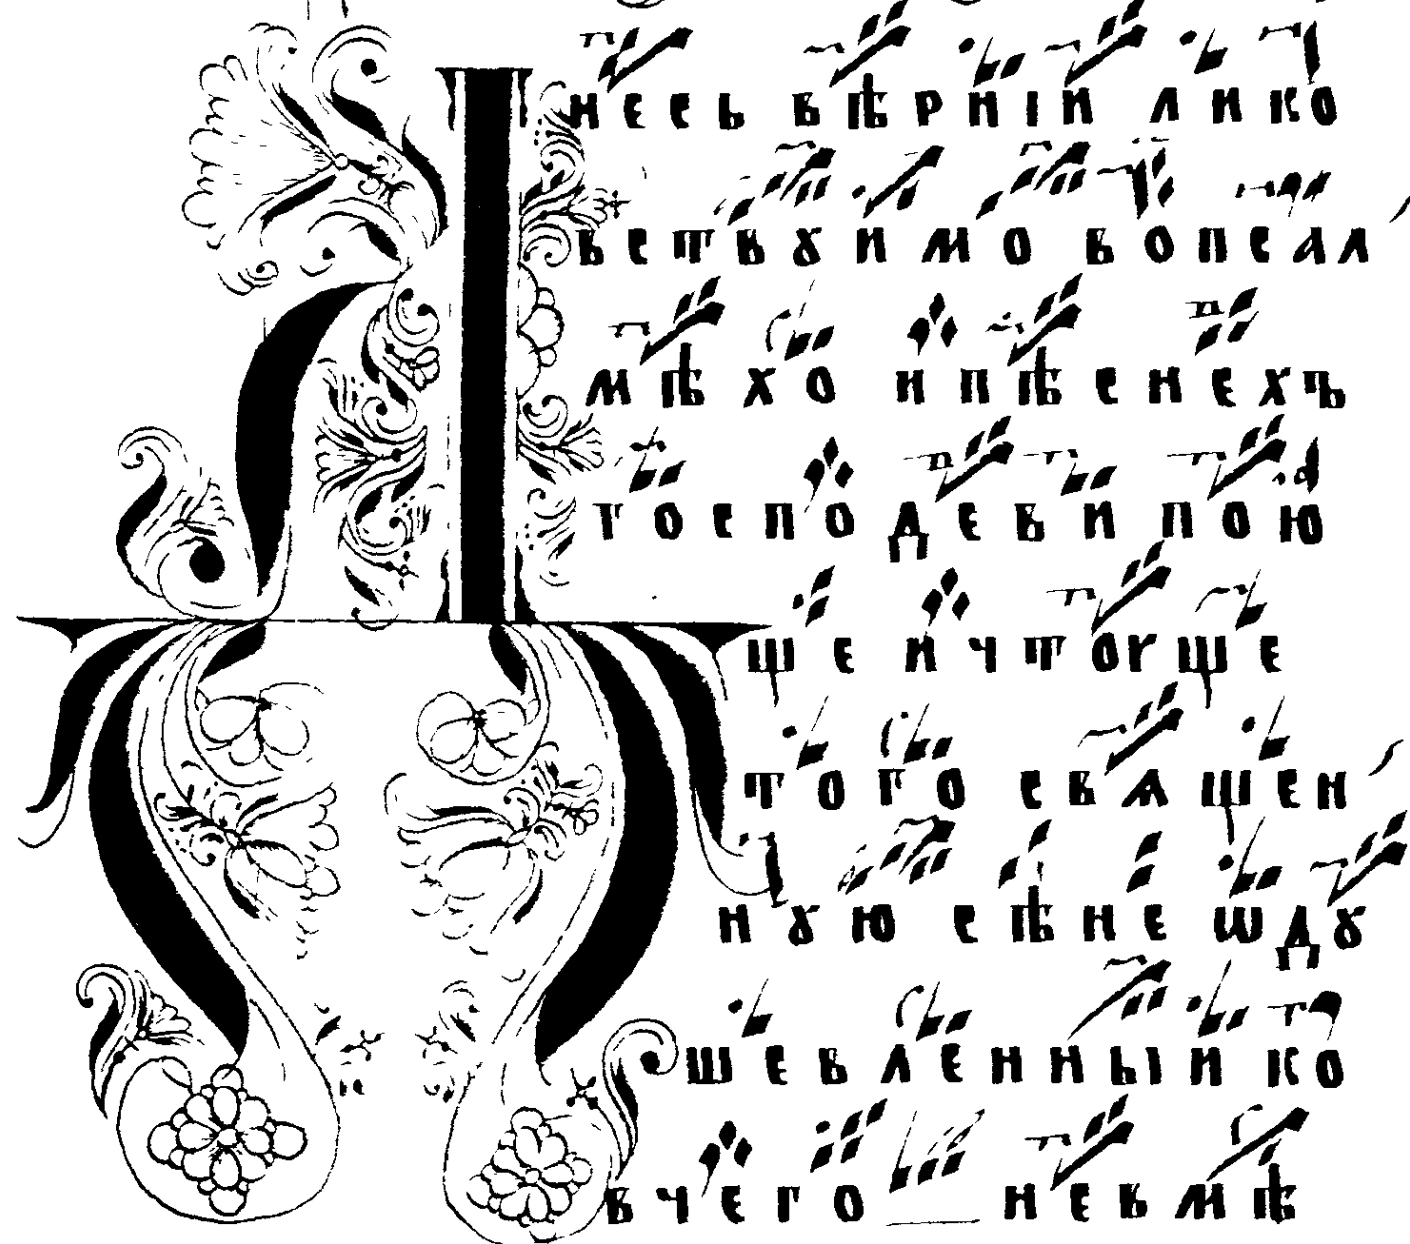 несь вѣрнїи лико
вествꙋимо вопсал
мѣхо и пѣснехъ
госпо деви пою
ще и чтꙋще
того свѧщен
нꙋю сѣне ѡдꙋ
шевленныи ко
вчего невмѣ